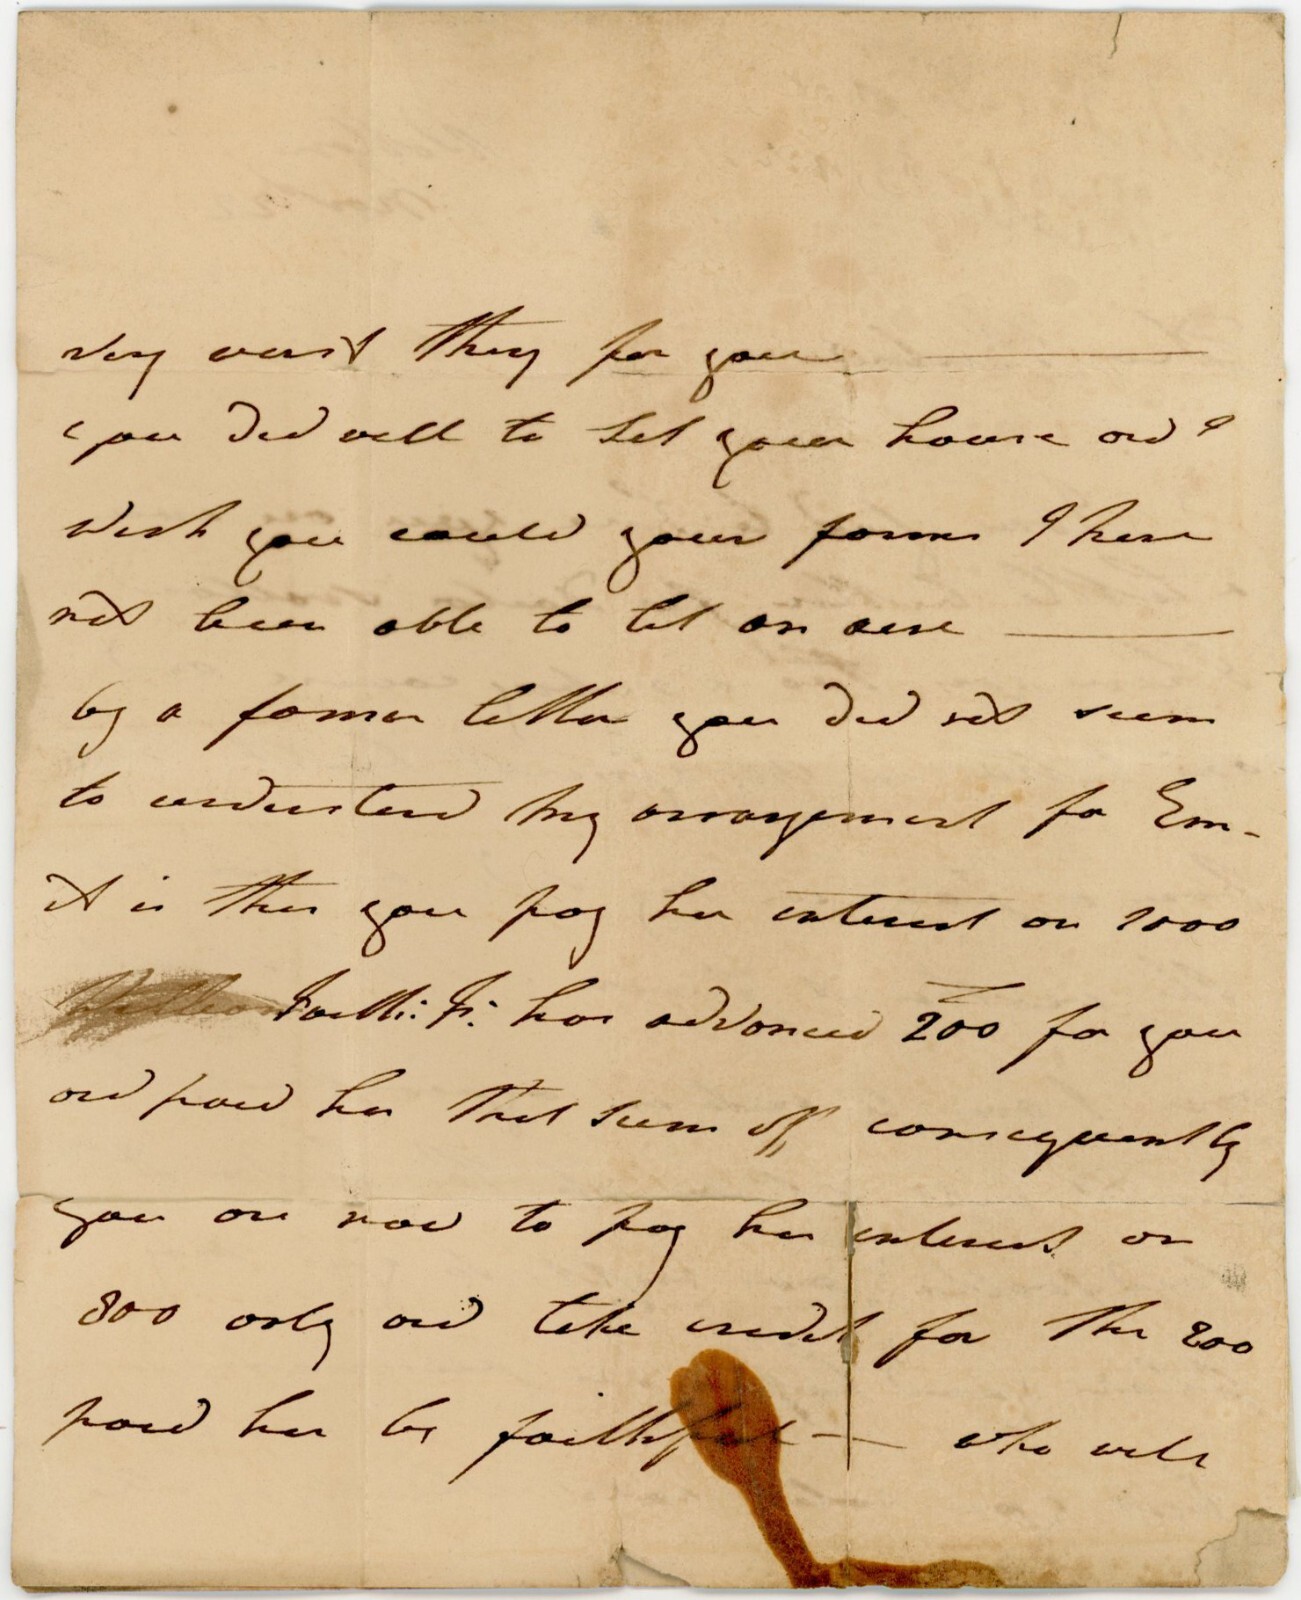 very worst thing for you
you did well to let your house and I
wish you could your farms I have
not been able to let an acre
by a former letter you did not seem
to understand my arrangement for Em-
it is this you pay her interest on 1000
Faith: F: has advanced 200 for you
and paid her that sum off consequently
you are now to pay her interest on
800 only and take credit for the 200
paid her by faithful — who will